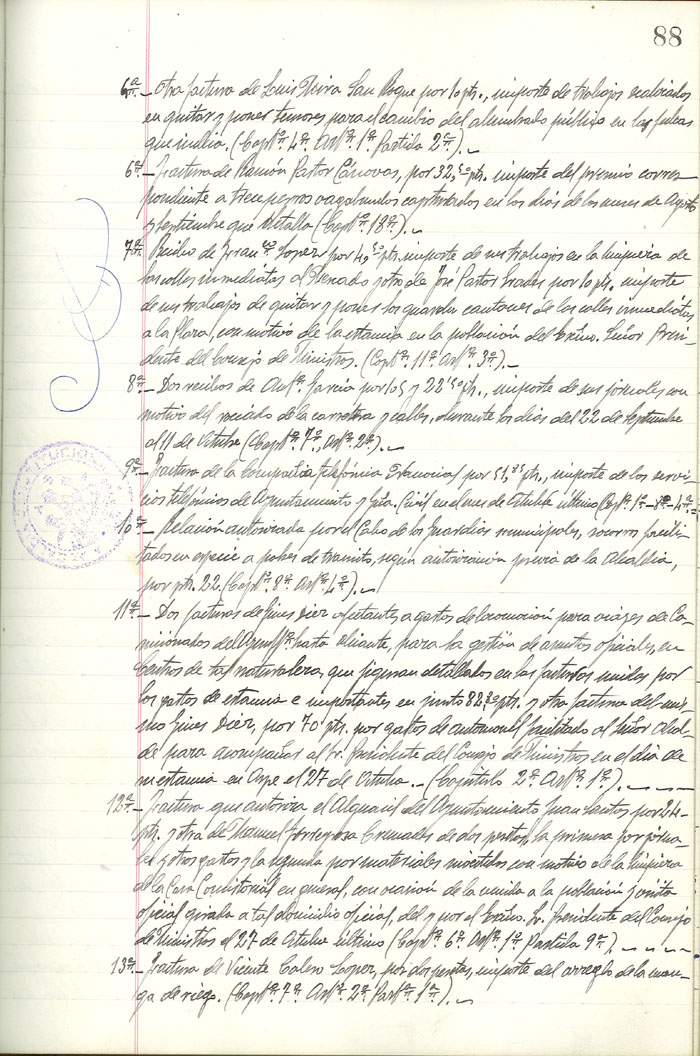 88
6ª.- Otra factura de Luis Mira San Roque por 10 pts., importe de trabajos realizados
en quitar y poner tensores para el cambio del alumbrado público en las fechas
que indica. (Captº. 4º. Artº. 1º. Partida 2ª.).-
6ª.- Factura de Ramón Pastor Cánovas, por 32,50 pts. importe del premio corres-
pondiente a trece perros vagabundos capturados en los días de los meses de Agosto
y Septiembre que detalla (Captº. 18º.).-
7ª.- Recibo de Franco. Lopez por 4,50 pts. importe de sus trabajos en la limpieza de
las calles inmediatas al Mercado y otro de José Pastor por 10 pts. importe
de sus trabajos de quitar y poner los guarda cantones de las calles inmediatas
a la Plaza, con motivo de la estancia en la población del Excmo. Señor Presi-
dente del Consejo de Ministros. (Captº. 11º Artº. 3º.).-
8ª.- Dos recibos de Antº. García por 105 y 22,50 pts., importe de sus jornales con
motivo del rociado de la carretera y calles, durante los días del 22 de Septiembre
al 11 de Octubre (Captº. 7º., Artº. 2º.).-
9ª.- Factura de la Compañía Telefónica Nacional por 51,75 pts., importe de los servi-
cios telefónicos de Ayuntamiento y Gda. Civil en el mes de Octubre último (Captº. 1º-8º-4º.=
10ª.- Relación autorizada por el Cabo de los Guardias municipales, socorros facili-
tados en especie a pobres de transito, según autorización previa de la Alcaldia,
por pts. 22. (Captº. 8º. Artº. 4º.).-
11ª.- Dos facturas de Gines Diez afectantes a gastos de locomoción para viajes de Co-
misionados del Ayuntº. hasta Alicante, para la gestión de asuntos oficiales, en
Centros de tal naturaleza, que figuran detallados en las facturas unidas por
los gastos de estancia e importantes en junto 82,20 pts. y otra factura del mis-
mo Gines Diez, por 70' pts. por gastos de automovil facilitado al Señor Alcal-
de para acompañar al Sr. Presidente del Consejo de Ministros en el día de
su estancia en Aspe el 27 de Octubre.- (Capítulo 2º. Artº. 1º.).- - - -
12ª.- Factura que autoriza el Alguacil del Ayuntamiento Juan Santos por 24-
pts. y otra de Manuel Cremades de dos pesetas, la primera por jorna-
les y otros gastos y la segunda por materiales invertidos con motivo de la limpieza
de la Casa Consistorial en general, con ocasión de la venida a la población y visita
oficial girada a tal domicilio oficial, del y por el Excmo. Sr. Presidente del Consejo
de Ministros el 27 de Octubre último (Captº. 6º. Artº. 1º Partida 9ª.).- - - -
13ª.- Factura de Vicente Calero Lopez, por dos pesetas, importe del arreglo de la man-
ga de riego. (Captº. 7º. Artº. 2º Partª. 1ª.).-